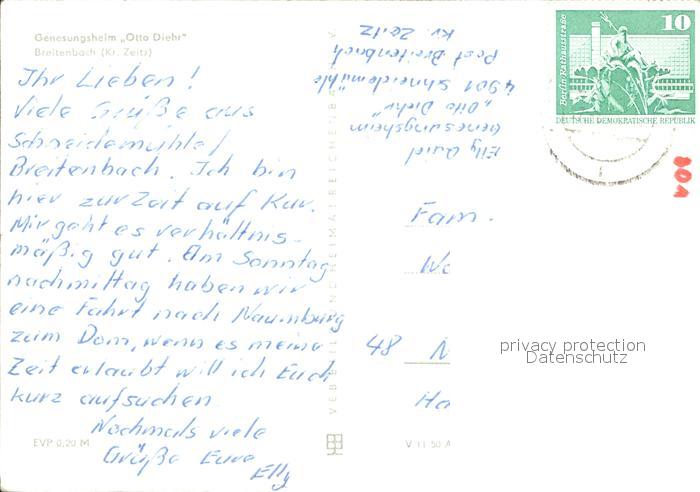 Genesungsheim „Otto Diehr"
Breitenbach (Kr. Zeitz)
Ihr Lieben!
Viele Grüße aus
Schneidemühle/
Breitenbach. Ich bin
hier zur Zeit auf Kur.
Mir geht es verhältnis-
mäßig gut. Am Sonntag
nachmittag haben wir
eine Fahrt nach Naumburg
zum Dom, wenn es meine
Zeit erlaubt will ich Euch
kurz aufsuchen
Nochmals viele
Grüße Eure
Elly
EVP 0,20 M
Elly
Genesungsheim
„Otto Diehr"
4901 Schneidemühle
Post Breitenbach
Kr. Zeitz
10
Berlin Rathausstraße
DEUTSCHE DEMOKRATISCHE REPUBLIK
Fam.
48
V 11 50 A
privacy protection
Datenschutz